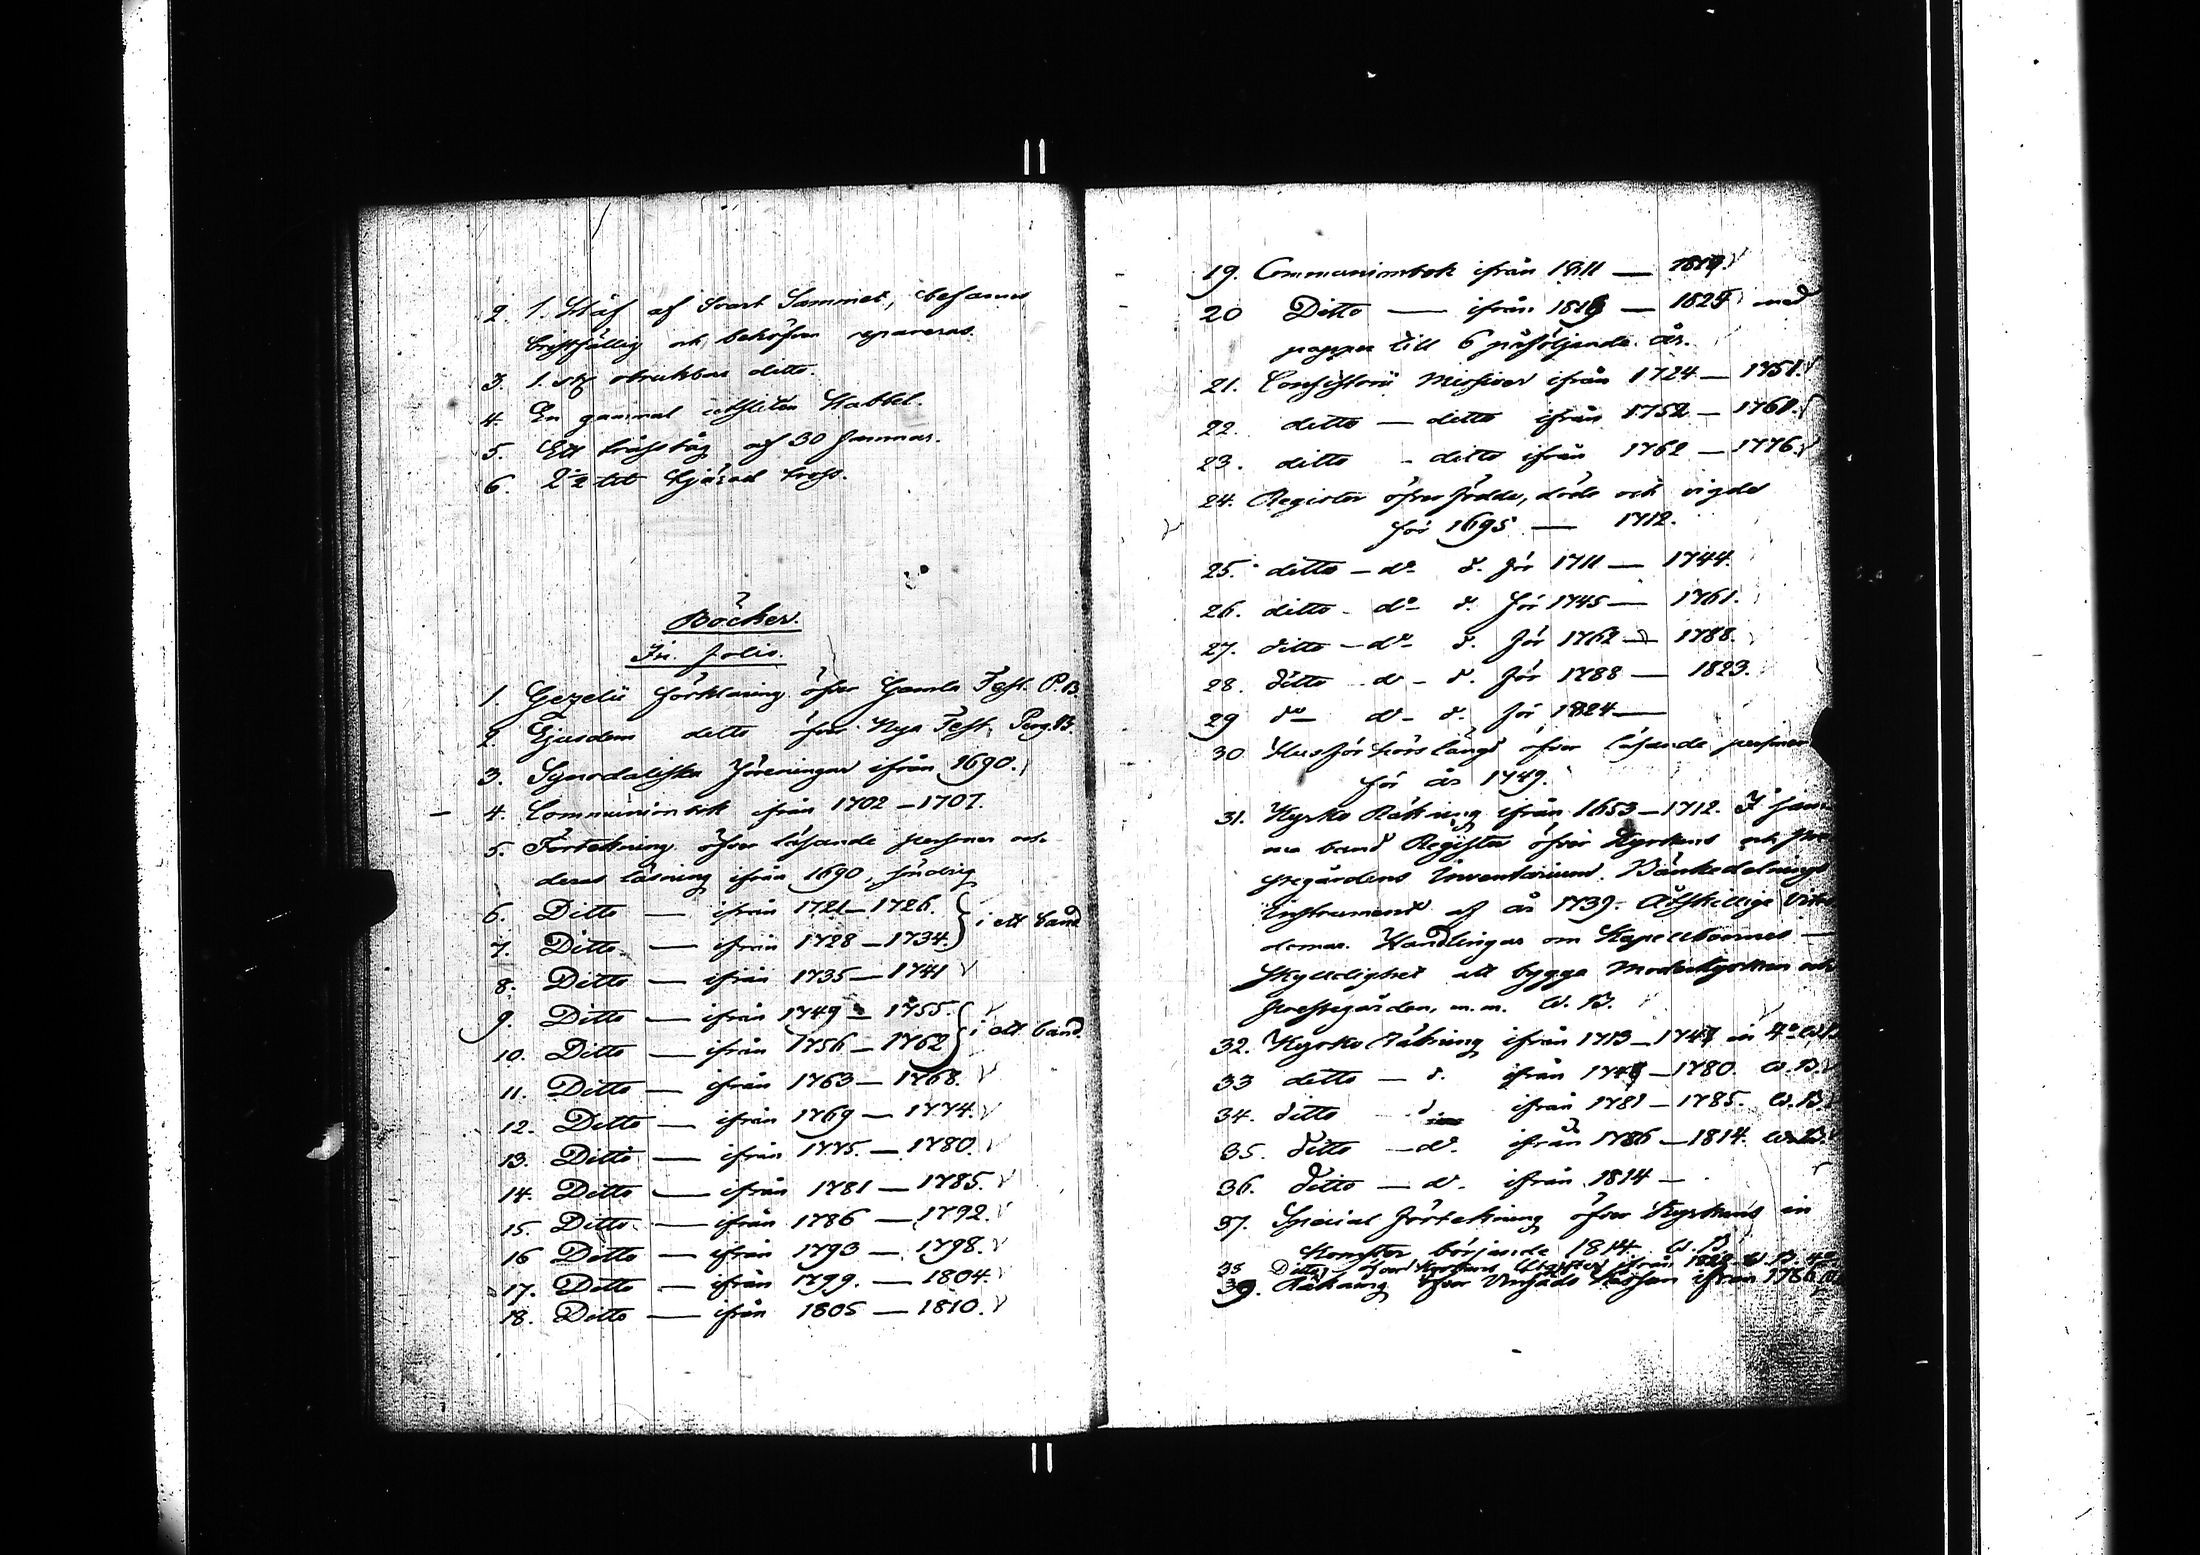 2. 1. Håf af Svart Sammet, befanns
bristfällig och behöfver repareras.
3. 1. st. obrukbar ditto.
4. En gammal utsliten
5. Ett af 30 famnar.
6. 2 1/2 tjärad
Böcker.
In folio.
1. Gezelii förklaring öfver Gamla Test. P. B.
2. Ejusdem ditto öfver Nya Test. Perg. B.
3. Synodaliska ifrån 1690.
4. Communionbok ifrån 1702 – 1707.
5. Förtekning öfver läsande personer och
deras läsning ifrån 1690,
6. Ditto — ifrån 1721 – 1726. } i ett band
7. Ditto — ifrån 1728 – 1734.
8. Ditto — ifrån 1735 – 1741
9. Ditto — ifrån 1749 – 1755. } i ett band
10. Ditto — ifrån 1756 – 1762
11. Ditto — ifrån 1763 – 1768.
12. Ditto — ifrån 1769 – 1774.
13. Ditto — ifrån 1775. – 1780.
14. Ditto — ifrån 1781 – 1785.
15. Ditto — ifrån 1786 – 1792.
16 Ditto — ifrån 1793 – 1798.
17. Ditto — ifrån 1799. – 1804.
18. Ditto — ifrån 1805 – 1810.
19. Communionbok ifrån 1811 — 1819.
20 Ditto — ifrån 1819 — 1825 med
papper till 6 påföljande år.
21. Consistorii Missiver ifrån 1724 – 1751.
22. ditto — ditto ifrån 1752 – 1761.
23. ditto - ditto ifrån 1762 – 1776.
24. Register öfver födde, döde och vigde
för 1695 — 1712.
25. ditto – do d. för 1711 — 1744.
26. ditto – do d. för 1745 — 1761.
27. ditto – do d. för 1762 — 1788.
28. ditto do - d. för 1788 — 1823.
29 do do - d. för 1824 —
30 Husförhörslängd öfver läsande personer
för år 1749.
31. Kyrko Räkning ifrån 1653 – 1712. I
band Register öfver Kyrkans och
Inventarium. Bänkedelnings
Instrument af år 1739. Åtskillige
Handlingar om Kapellboernes
skyldighet att bygga Moderkyrkan och
Prestegården, m.m. W. B.
32. Kyrko Räkning ifrån 1713 – 1747 in 4o
33 ditto — d. ifrån 1748 – 1780. W. B.
34. ditto d ifrån 1781 – 1785. W. B.
35. ditto – do. ifrån 1786 – 1814. W. B.
36. ditto — do. ifrån 1814 –
37. Special förtekning öfver Kyrkans in
komster börjande 1814. W. B.
38 Ditto öfver Kyrkans Utgifter ifrån W. B. 4o
39. Räkning öfver ifrån 1786